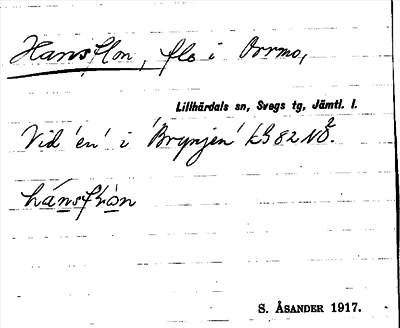 Hansflon, flo i Orrmo,
Lillhärdals sn, Svegs tg, Jämtl. l.
Vid 'en' i 'Brynjen' kB 82 NÖ.
hánsfLòn
S. ÅSANDER 1917.